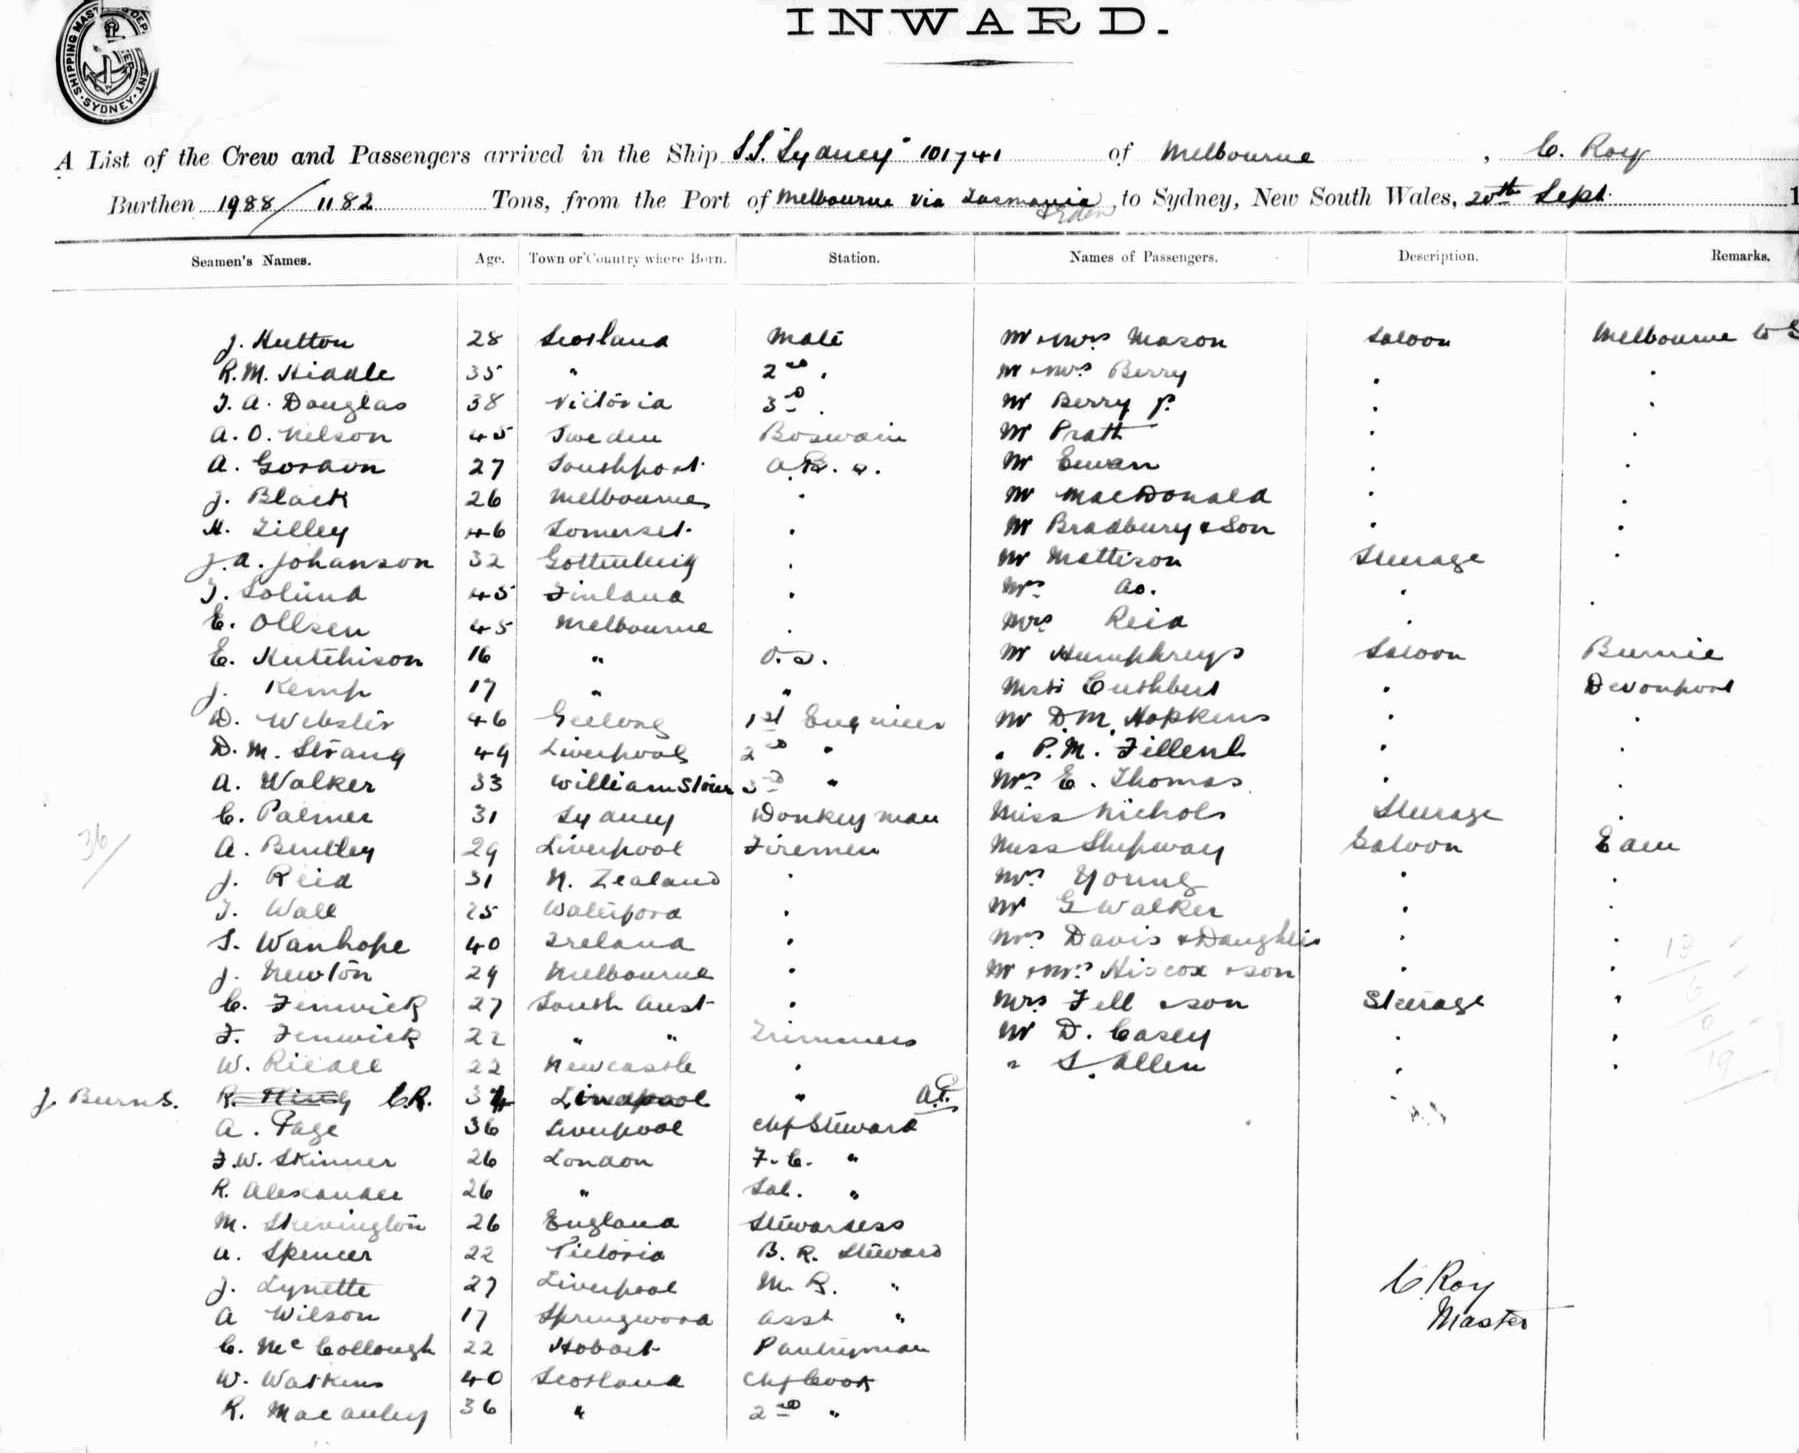 SHIPPING MASTER'S DEPARTMENT SYDNEY
INWARD.
A List of the Crew and Passengers arrived in the Ship S.S. "Sydney" 101741 of Melbourne, C. Roy
Burthen 1988/1182 Tons, from the Port of Melbourne via Tasmania & Eden, to Sydney, New South Wales, 20th Sept. 1
Seamen's Names. Age. Town or Country where Born. Station. Names of Passengers. Description. Remarks.
J. Hutton 28 Scotland Mate Mr & Mrs Mason Saloon Melbourne to S
R. M. Hiddle 35 " 2nd " Mr & Mrs Berry " "
T. A. Douglas 38 Victoria 3rd " Mr Berry jr. " "
A. O. Nelson 45 Sweden Boswain Mr Pratt " "
A. Gordon 27 Southport A.B. s. Mr Ewan " "
J. Black 26 Melbourne " Mr MacDonald " "
H. Lilley 46 Somerset " Mr Bradbury & Son " "
J. A. Johanson 32 Gottenburg " Mr Mattison Steerage "
T. Solund 45 Finland " Mrs do. " "
E. Ollsen 45 Melbourne " Mrs Reid "
E. Hutchison 16 " O.S. Mr Humphreys Saloon Burnie
J. Kemp 17 " " Mstr Cuthbert " Devonport
D. Webster 46 Geelong 1st Engineer Mr D. M. Hopkins " "
D. M. Strang 49 Liverpool 2nd " " P. M. Fillenl " "
A. Walker 33 Williamstown 3rd " Mrs E. Thomas " "
C. Palmer 31 Sydney Donkeyman Miss Nichols Steerage "
36/ A. Bentley 29 Liverpool Firemen Miss Shipway Saloon Eden
J. Reid 31 N. Zealand " Mrs Young " "
T. Wall 25 Waterford " Mr G Walker " "
S. Wanhope 40 Ireland " Mrs Davis & Daughter " " 13
J. Newton 29 Melbourne " Mr & Mrs Hiscox & son " "
C. Fenwick 27 South Aust " Mrs Fell & son Steerage " 6
F. Fenwick 22 " " Trimmers Mr D. Casey " " 0
W. Riddle 22 Newcastle " " S. Allen " " 19
J. Burns. R. King C.R. 34 Liverpool "
A. Page 36 Liverpool Chf Steward
F. W. Skinner 26 London F.C. "
R. Alexander 26 " Sal. "
M. Skevington 26 England Stewardess
A. Spencer 22 Victoria B. R. Steward
J. Lynette 27 Liverpool M. R. " C. Roy
A Wilson 17 Springwood Asst " Master
C. McCollough 22 Hobart Pantryman
W. Watkins 40 Scotland Chf Cook
R. Macauley 36 " 2nd "